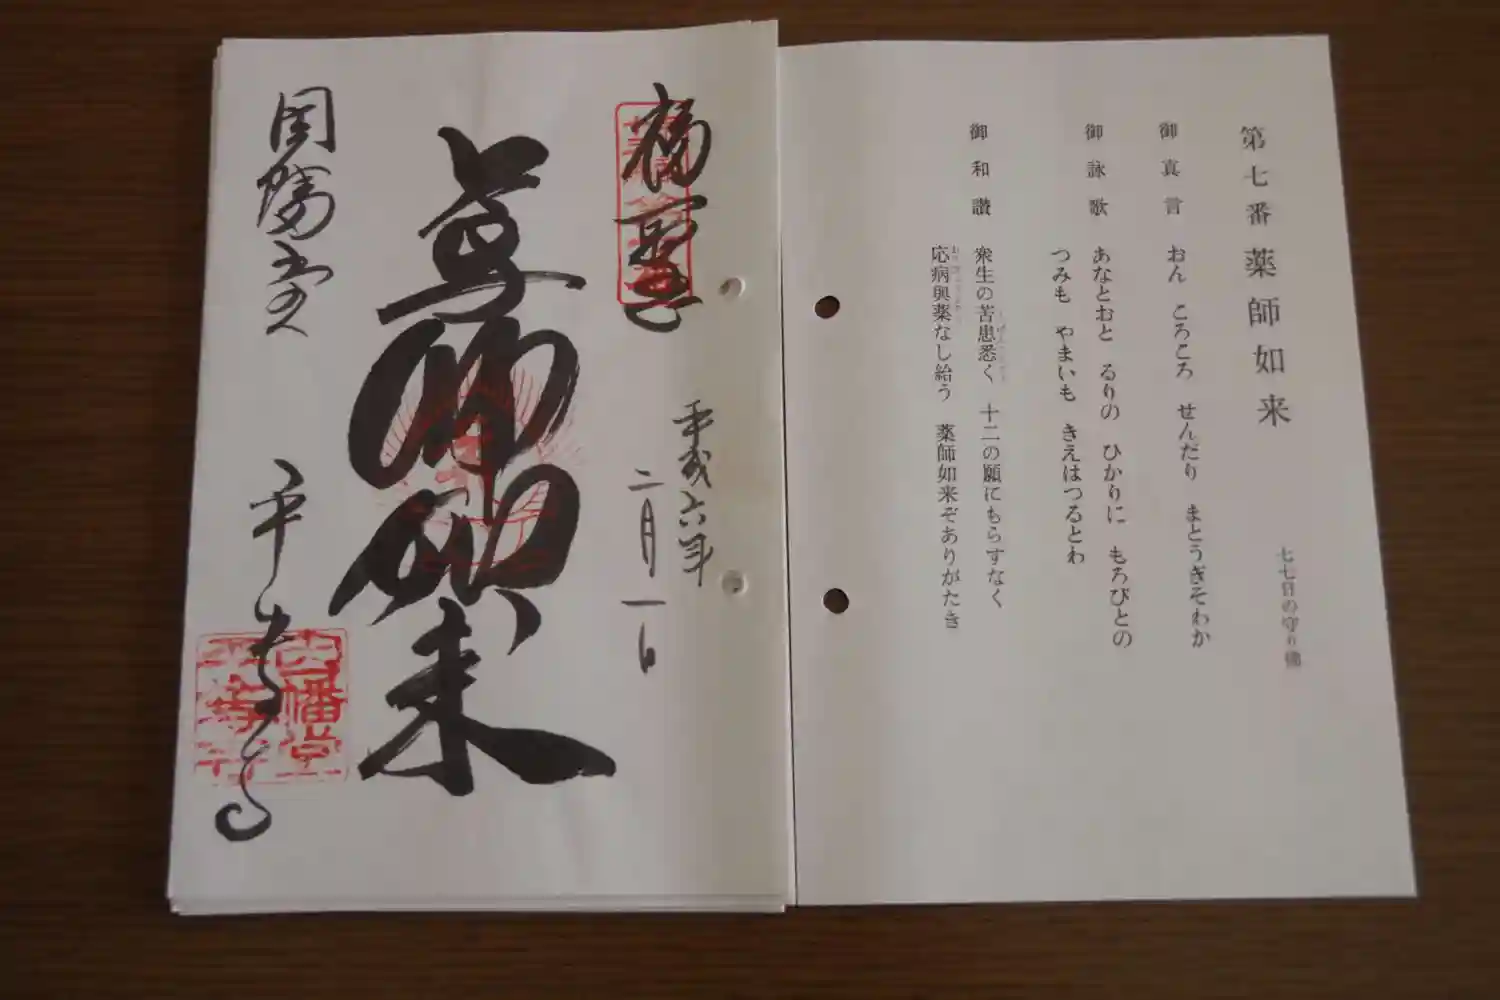 第七番 薬師如来
七七日の守り佛
御真言 おん ころころ せんだり まとうぎそわか
御詠歌 あなとおと るりの ひかりに もろびとの
つみも やまいも きえはつるとわ
御和讃 衆生の苦患悉く 十二の願にもらすなく
応病與薬なし給う 薬師如来ぞありがたき
平成六年
二月一日
薬師如来
因幡堂 平等寺
因幡堂
平等寺